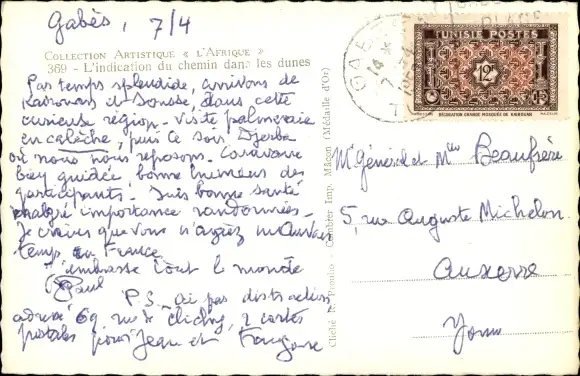 Gabès, 7/4
COLLECTION ARTISTIQUE « L'AFRIQUE »
369 - L'indication du chemin dans les dunes
Par temps splendide, arrivons de
Kairouan et Sousse, dans cette
curieuse région. Visite palmeraie
en calèche, puis ce soir Djerba
où nous nous reposons. Caravane
bien guidée, bonne humeur des
participants. Suis bonne santé
malgré importance randonnées.
Je crains que vous n'ayiez mauvais
temps en France
J'embrasse tout le monde
Paul
P.S. ai pas distraction
adresse 69 rue de Clichy, 2 cartes
postales pour Jean et
Cliché R. Prouho - Combier Imp. Mâcon (Médaille d'Or)
TUNISIE POSTES
12F
+15
DÉCORATION GRANDE MOSQUÉE DE KAIROUAN
GAB
14 *
Mr Général et Mes Beaufrère
5, rue Auguste Michelon
Auxerre
Yonne